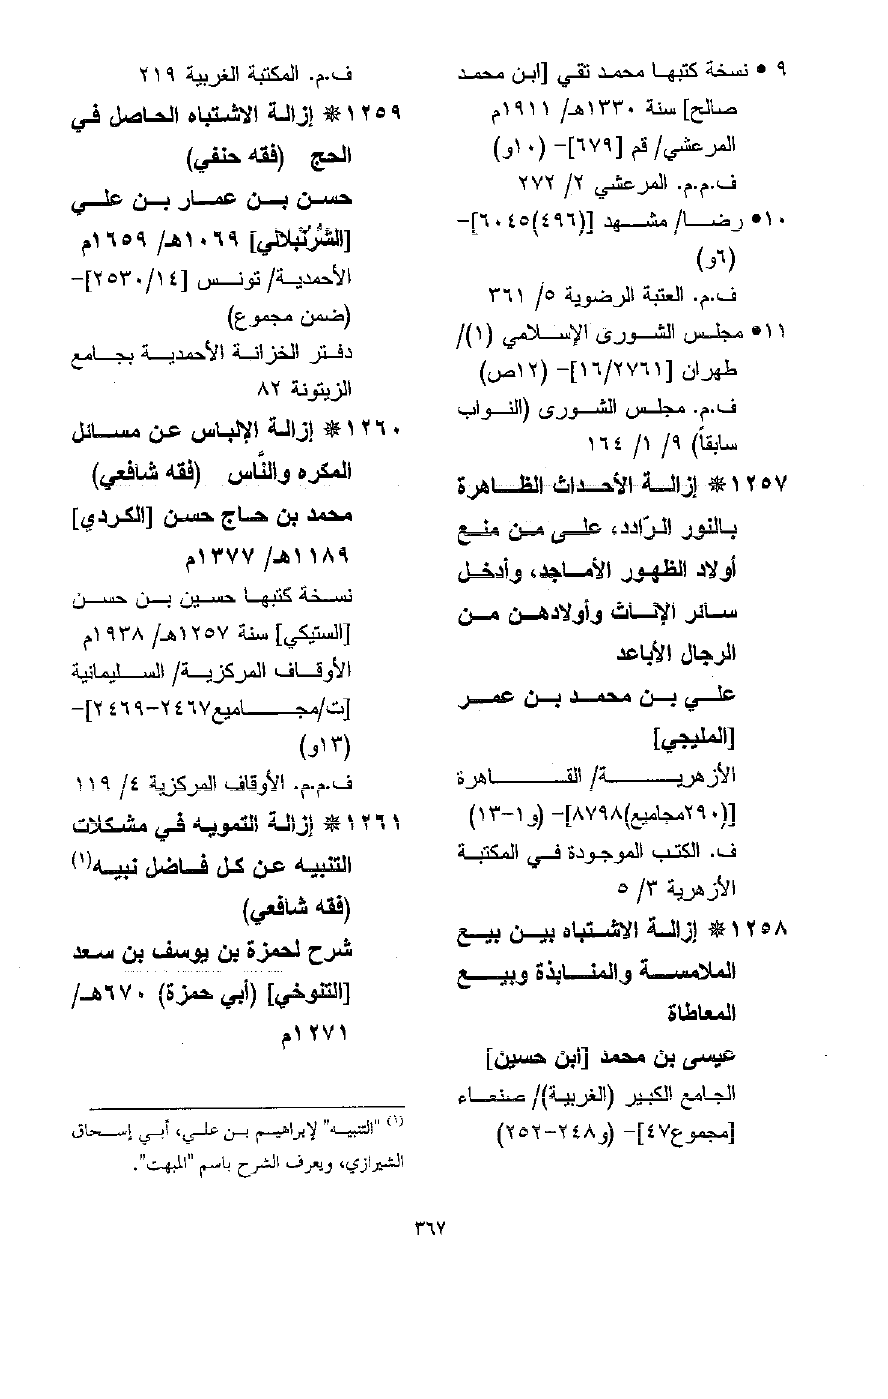 ٩ • نسخة كتبها محمد تقي [ابن محمد
صالح] سنة ١٣٣٠هـ/ ١٩١١م
المرعشي/ قم [٦٧٩]- (١٠و)
ف.م.م. المرعشي ٢/ ٢٧٢
١٠• رضا/ مشهد [(٤٩٦)٦٠٤٥]-
(٦و)
ف.م. العتبة الرضوية ٥/ ٣٦١
١١• مجلس الشورى الإسلامي (١)/
طهران [١٦/٢٧٦١]- (١٢ص)
ف.م. مجلس الشورى (النواب
سابقاً) ٩/ ١/ ١٦٤
١٢٥٧ * إزالة الأحداث الظاهرة
بالنور الرّادد، على من منع
أولاد الظهور الأماجد، وأدخل
سائر الإناث وأولادهن من
الرجال الأباعد
علي بن محمد بن عمر
[المليجي]
الأزهرية/ القاهرة
[(٢٩٠مجاميع)٨٧٩٨]- (و١-١٣)
ف. الكتب الموجودة في المكتبة
الأزهرية ٣/ ٥
١٢٥٨ * إزالة الاشتباه بين بيع
الملامسة والمنابذة وبيع
المعاطاة
عيسى بن محمد [ابن حسين]
الجامع الكبير (الغربية)/ صنعاء
[مجموع٤٧]- (و٢٤٨-٢٥٢)
ف.م. المكتبة الغربية ٢١٩
١٢٥٩ * إزالة الاشتباه الحاصل في
الحج (فقه حنفي)
حسن بن عمار بن علي
[الشُّرُنْبلالي] ١٠٦٩هـ/ ١٦٥٩م
الأحمدية/ تونس [٢٥٣٠/١٤]-
(ضمن مجموع)
دفتر الخزانة الأحمدية بجامع
الزيتونة ٨٢
١٢٦٠ * إزالة الإلباس عن مسائل
المكره والنَّاس (فقه شافعي)
محمد بن حاج حسن [الكردي]
١١٨٩هـ/ ١٣٧٧م
نسخة كتبها حسين بن حسن
[الستيكي] سنة ١٢٥٧هـ/ ١٩٣٨م
الأوقاف المركزية/ السليمانية
[ت/مجاميع٢٤٦٧-٢٤٦٩]-
(١٣و)
ف.م.م. الأوقاف المركزية ٤/ ١١٩
١٢٦١ * إزالة التمويه في مشكلات
التنبيه عن كل فاضل نبيه(١)
(فقه شافعي)
شرح لحمزة بن يوسف بن سعد
[التنوخي] (أبي حمزة) ٦٧٠هـ/
١٢٧١م
(١) "التنبيه" لإبراهيم بن علي، أبي إسحاق
الشيرازي، ويعرف الشرح باسم "المبهت".
٣٦٧